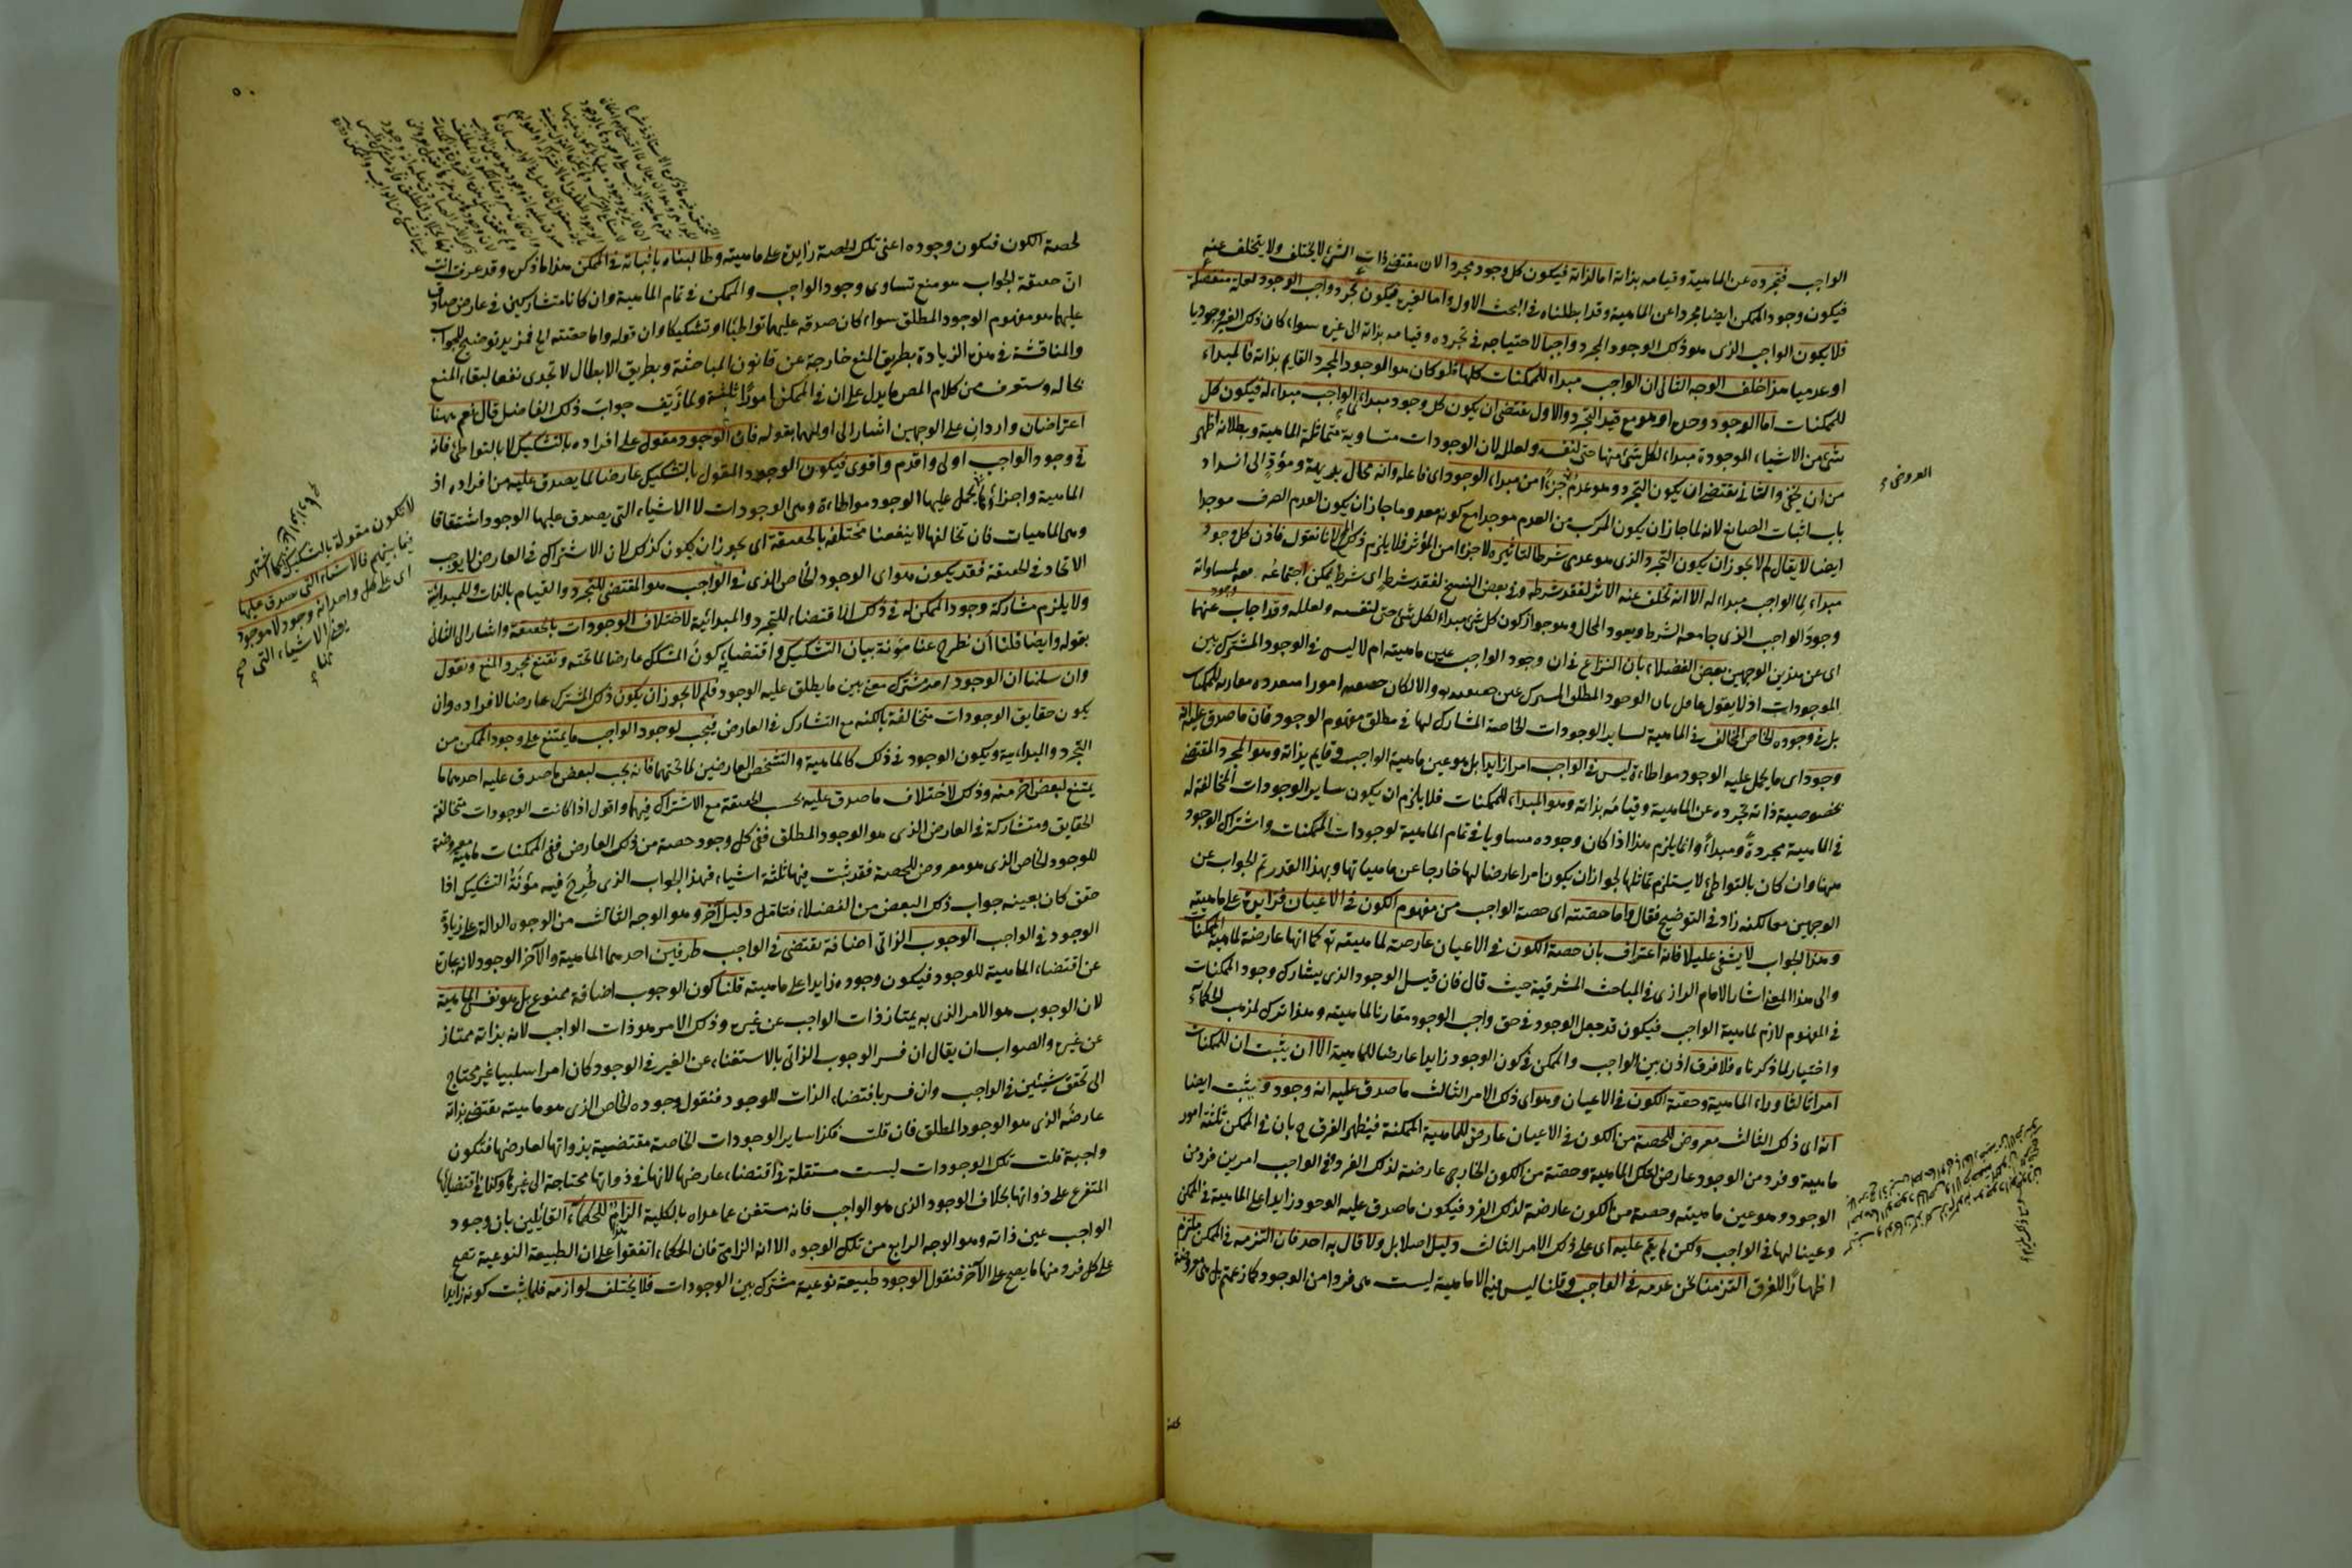 الواجب فتجرده عن الماهية وقيامه بذاته اما لذاته فيكون كل وجود مجردا لان مقتضى ذات الشئ لا يختلف ولا يتخلف عنه
فيكون وجود الممكن ايضا مجردا عن الماهية وقد ابطلناه في البحث الاول واما لغيره فيكون تجرد واجب الوجود لعلة منفصلة
فلا يكون الواجب الذى هو ذلك الوجود المجرد واجبا لاحتياجه في تجرده وقيامه بذاته الى غيره سواء كان ذلك الغير وجوديا
او عدميا هذا خلف الوجه الثانى ان الواجب مبداء للممكنات كلها فلو كان هو الموجود المجرد القايم بذاته فالمبداء
للممكنات اما الوجود وحده او هو مع قيد التجرد والاول يقتضى ان يكون كل وجود مبداء لما الواجب مبداء له فيكون كل
شئ من الاشياء الموجودة مبداء لكل شئ منها حتى لنفسه ولعلله لان الوجودات متساوية متماثلة الماهية وبطلانه اظهر
من ان يخفى والثانى يقتضى ان يكون التجرد وهو عدم جزءا من مبداء الوجود اى فاعله وانه محال بديهة ومؤد الى انسداد
باب اثبات الصانع لانه لما جاز ان يكون المركب من العدم موجدا مع كونه معدوما جاز ان يكون العدم الصرف موجدا
ايضا لا يقال لم لا يجوز ان يكون التجرد الذى هو عدمى شرطا لتاثيره لا جزءا من المؤثر فلا يلزم ذلك المحال لانا نقول فاذن كل وجود
مبداء لما الواجب مبداء له الا انه تخلف عنه الاثر لفقد شرطه وفى بعض النسخ لفقد شرط اى شرط يمكن اجتماعه معه لمساواته
وجود الواجب الذى جامعه الشرط ويعود المحال وهو جواز كون كل شئ مبداء لكل شئ حتى لنفسه ولعلله وقد اجاب عنهما
اى عن هذين الوجهين بعض الفضلاء بان النزاع في ان وجود الواجب عين ماهيته ام لا ليس في الوجود المشترك بين
الموجودات اذ لا يقول عاقل بان الوجود المطلق المشترك عين حقيقته والا لكان حقيقته امورا متعددة مقارنة للممكنات
بل في وجوده الخاص المخالف في الماهية لساير الوجودات الخاصة المشارك لها في مطلق مفهوم الوجود فان ما صدق عليه انه
وجود اى ما يحمل عليه الوجود مواطاءة ليس في الواجب امرا زايدا بل هو عين ماهية الواجب وقايم بذاته وهو المجرد المقتضى
بخصوصية ذاته تجرده عن الماهية وقيامه بذاته وهو المبداء للممكنات فلا يلزم ان يكون ساير الوجودات المخالفة له
في الماهية مجردة ومبداء وانما يلزم هذا اذا كان وجوده مساويا في تمام الماهية لوجودات الممكنات واشتراك الوجود
ههنا وان كان بالتواطئ لا يستلزم تماثلها لجواز ان يكون امرا عارضا لها خارجا عن ماهياتها وبهذا القدر تم الجواب عن
الوجهين معا لكنه زاد في التوضيح فقال واما حصته اى حصة الواجب من مفهوم الكون في الاعيان فزايدة على ماهيته
وهذا الجواب لا يشفى عليلا فانه اعتراف بان حصة الكون في الاعيان عارضة لماهيته تع كما انها عارضة لماهية الممكنات
والى هذا المعنى اشار الامام الرازى في المباحث المشرقية حيث قال فان قيل الوجود الذى يشارك وجود الممكنات
في المفهوم لازم لماهية الواجب فيكون قد جعل الوجود في حق واجب الوجود مقارنا لماهيته وهذا ترك لمذهب الحكماء
واختيار لما ذكرناه فلا فرق اذن بين الواجب والممكن في كون الوجود زايدا عارضا للماهية الا ان يثبت ان للممكنات
امرا ثالثا وراء الماهية وحصة الكون في الاعيان وهو اى ذلك الامر الثالث ما صدق عليه انه وجود ويثبت ايضا
انه اى ذلك الثالث معروض للحصة من الكون في الاعيان عارض للماهية الممكنة فيظهر الفرق ح بان في الممكن ثلثة امور
ماهية وفرد من الوجود عارض لتلك الماهية وحصة من الكون الخارجى عارضة لذلك الفرد وفى الواجب امرين فرد من
الوجود وهو عين ماهيته وحصة من الكون عارضة لذلك الفرد فيكون ما صدق عليه الوجود زايدا على الماهية في الممكن
وعينا لها في الواجب ولكن لم يقم عليه اى على ذلك الامر الثالث دليل اصلا بل ولا قال به احد فان التزمه في الممكن ملتزم
اظهارا للفرق التزمنا نحن عدمه في الواجب وقلنا ليس فيه الا ماهية ليست هى فردا من الوجود كما زعمتم بل هى معروضة
العدمى
لحصة الكون فيكون وجوده اعنى تلك الحصة زايدة على ماهيته وطالبناه باثباته في الممكن هذا ما ذكره وقد عرفت انت
ان حقيقة الجواب هو منع تساوى وجود الواجب والممكن في تمام الماهية وان كانا متشاركين في عارض صادق
عليهما هو مفهوم الوجود المطلق سواء كان صدقه عليهما تواطيا او تشكيكا وان قوله واما حصته الخ فمزيد توضيح للجواب
والمناقشة في هذه الزيادة بطريق المنع خارجة عن قانون المباحثة وبطريق الابطال لا تجدى نفعا لبقاء المنع
بحاله وستعرف من كلام المص ما يدل على ان في الممكن امورا ثلثة ولما زيف جواب ذلك الفاضل قال نعم ههنا
اعتراضان واردان على الوجهين اشار الى اولهما بقوله فان الوجود مقول على افراده بالتشكيك لا بالتواطئ فانه
في وجود الواجب اولى واقدم واقوى فيكون الوجود المقول بالتشكيك عارضا لما يصدق عليه من افراده اذ
الماهية واجزاؤها يحمل عليها الوجود مواطاءة وهى الوجودات لا الاشياء التى يصدق عليها الوجود اشتقاقا
وهى الماهيات فان تخالفها لا ينفعنا مختلفة بالحقيقة اى يجوز ان يكون كذلك لان الاشتراك في العارض لا يوجب
الاتحاد في الحقيقة فقد يكون هو اى الوجود الخاص الذى في الواجب هو المقتضى للتجرد والقيام بالذات وللمبدائية
ولا يلزم مشاركة وجود الممكن له في ذلك الاقتضاء للتجرد والمبدائية لاختلاف الوجودات بالحقيقة واشار الى الثانى
بقوله وايضا فلنا ان نطرح عنا مؤنة بيان التشكيك واقتضايه كون المشكك عارضا لما تحته ونقنع بمجرد المنع ونقول
وان سلمنا ان الوجود امر مشترك معنى بين ما يطلق عليه الوجود فلم لا يجوز ان يكون ذلك المشترك عارضا لافراده وان
يكون حقايق الوجودات متخالفة بالكنه مع التشارك في العارض فيجب لوجود الواجب ما يمتنع على وجود الممكن من
التجرد والمبداءية ويكون الوجود في ذلك كالماهية والتشخص العارضين لما تحتهما فانه يجب لبعض ما صدق عليه احدهما ما
يمتنع لبعض اخر منه وذلك لاختلاف ما صدق عليه بحسب الحقيقة مع الاشتراك فيهما واقول اذا كانت الوجودات متخالفة
الحقايق ومتشاركة في العارض الذى هو الوجود المطلق ففى كل وجود حصة من ذلك العارض ففى الممكنات ماهية معروضة
للوجود الخاص الذى هو معروض للحصة فقد ثبت فيها ثلثة اشياء فهذا الجواب الذى طرح فيه مؤنة التشكيك اذا
حقق كان بعينه جواب ذلك البعض من الفضلاء فتامل دليل اخر وهو الوجه الثالث من الوجوه الدالة على زيادة
الوجود في الواجب الوجوب الذاتى اضافة يقتضى في الواجب طرفين احدهما الماهية والآخر الوجود لانه عبارة
عن اقتضاء الماهية للوجود فيكون وجوده زايدا على ماهيته قلنا كون الوجوب اضافة ممنوع بل هو نفس الماهية
لان الوجوب هو الامر الذى به يمتاز ذات الواجب عن غيره وذلك الامر هو ذات الواجب لانه بذاته ممتاز
عن غيره والصواب ان يقال ان فسر الوجوب الذاتى بالاستغناء عن الغير في الوجود كان امرا سلبيا غير محتاج
الى تحقق شيئين في الواجب وان فسر باقتضاء الذات للوجود فنقول وجوده الخاص الذى هو ماهيته يقتضى بذاته
عارضه الذى هو الوجود المطلق فان قلت فكذا ساير الوجودات الخاصة مقتضية بذواتها لعارضها فتكون
واجبة قلت تلك الوجودات ليست مستقلة في اقتضاء عارضها لانها في ذواتها محتاجة الى غيرها وكذا في اقتضايها
المتفرع على ذواتها بخلاف الوجود الذى هو الواجب فانه مستغن عما عداه بالكلية الزام للحكماء القايلين بان وجود
الواجب عين ذاته وهو الوجه الرابع من تلك الوجوه الا انه الزامى فان الحكماء اتفقوا على ان الطبيعة النوعية تصح
على كل فرد منها ما يصح على الآخر فنقول الوجود طبيعة نوعية مشترك بين الوجودات فلا يختلف لوازمه فلما ثبت كونه زايدا
لا تكون مقولة بالتشكيك كما اشتهر
فيما بينهم فالاشياء التى يصدق عليها
اى على كل واحد انه وجود لا موجود
بعض الاشياء التى